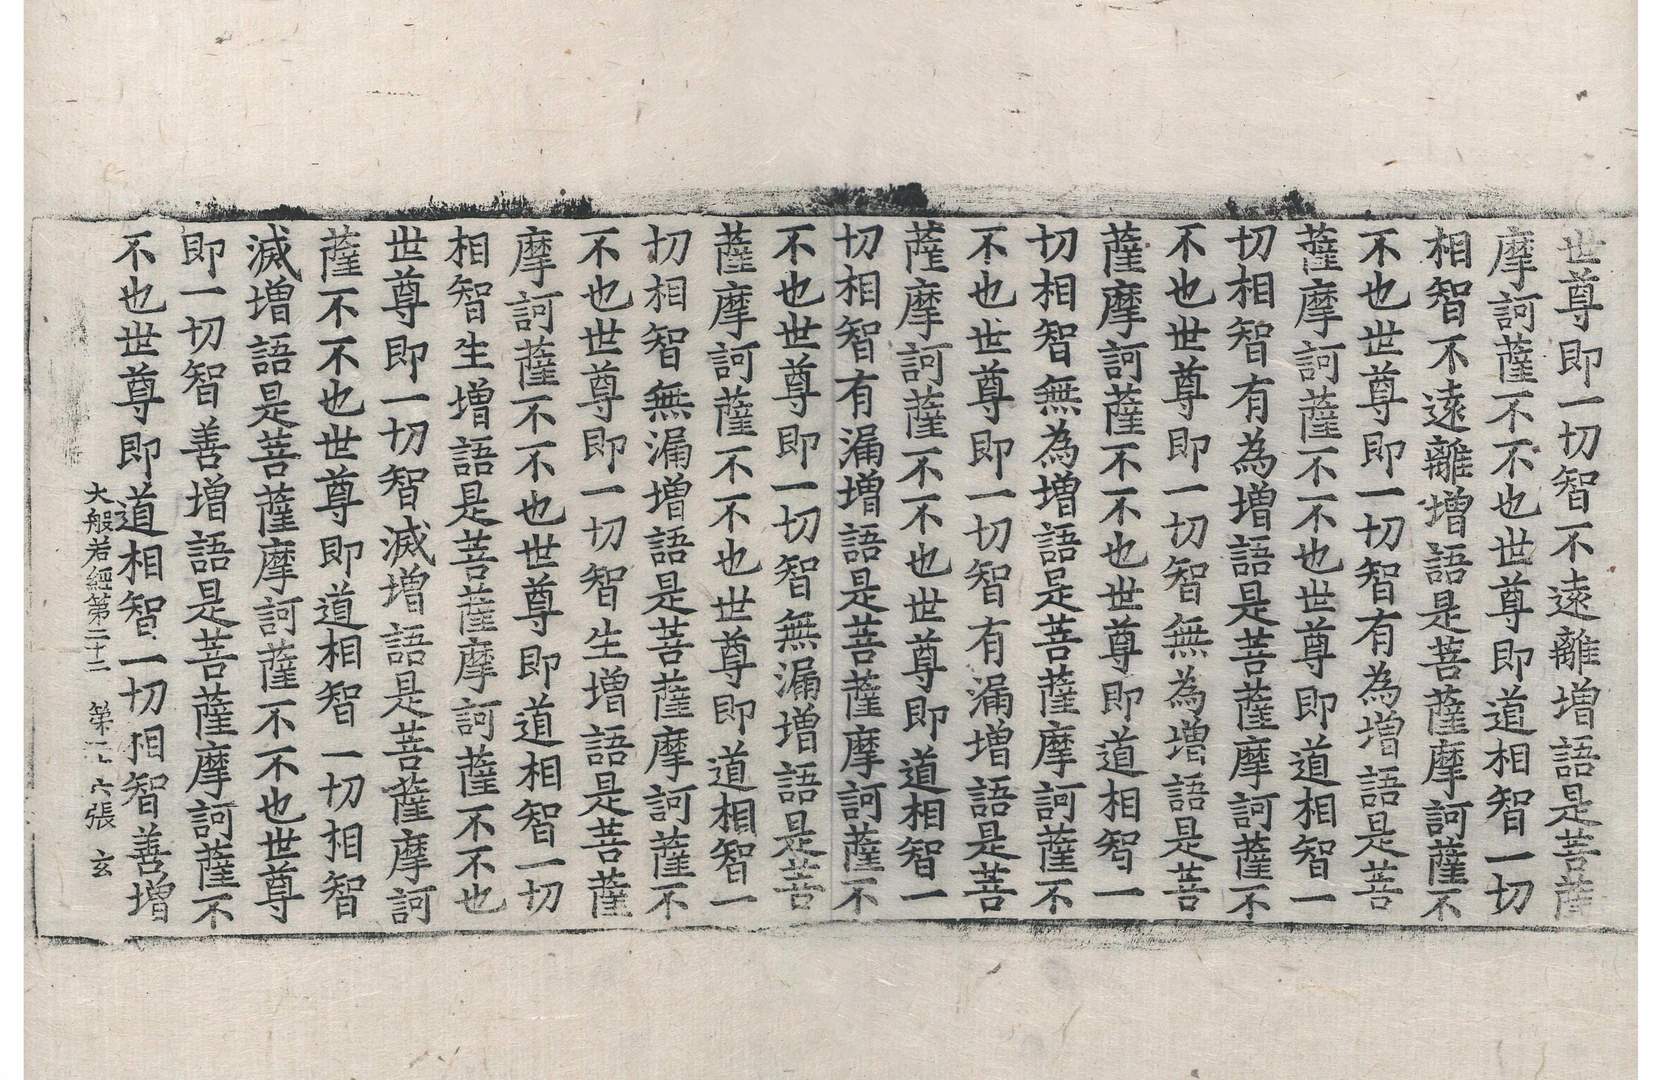 世尊即一切智不遠離增語是菩薩
摩訶薩不不也世尊即道相智一切
相智不遠離增語是菩薩摩訶薩不
不也世尊即一切智有為增語是菩
薩摩訶薩不不也世尊即道相智一
切相智有為增語是菩薩摩訶薩不
不也世尊即一切智無為增語是菩
薩摩訶薩不不也世尊即道相智一
切相智無為增語是菩薩摩訶薩不
不也世尊即一切智有漏增語是菩
薩摩訶薩不不也世尊即道相智一
切相智有漏增語是菩薩摩訶薩不
不也世尊即一切智無漏增語是菩
薩摩訶薩不不也世尊即道相智一
切相智無漏增語是菩薩摩訶薩不
不也世尊即一切智生增語是菩薩
摩訶薩不不也世尊即道相智一切
相智生增語是菩薩摩訶薩不不也
世尊即一切智滅增語是菩薩摩訶
薩不不也世尊即道相智一切相智
滅增語是菩薩摩訶薩不不也世尊
即一切智善增語是菩薩摩訶薩不
不也世尊即道相智一切相智善增
大般若經第二十二 第 六張 玄